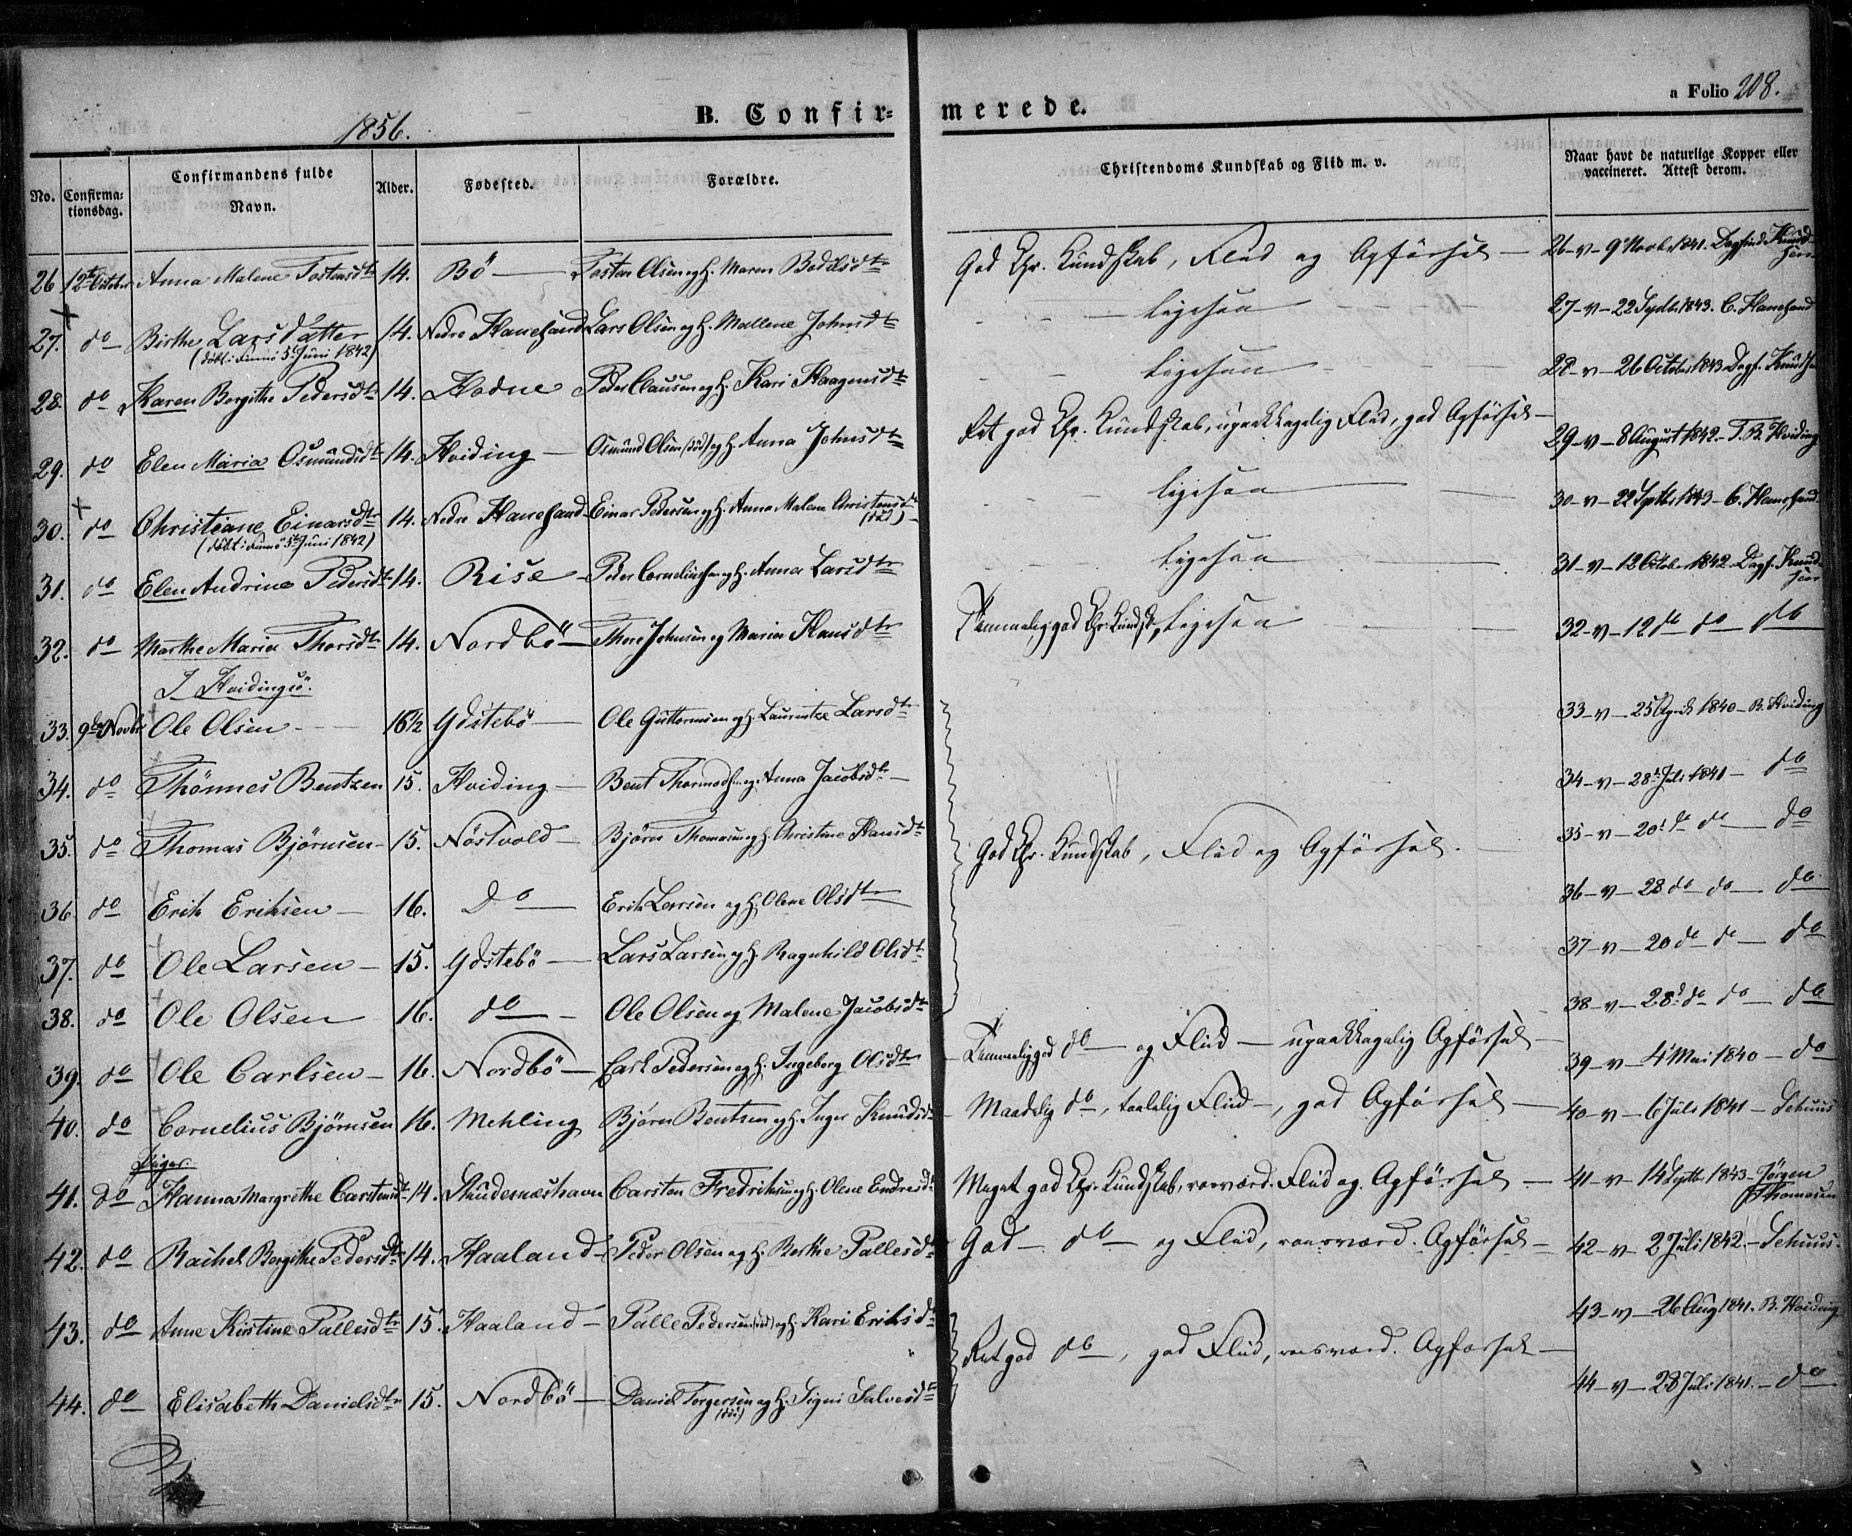 1856.
B. Confir-
merede.
a Folio 208.
No.
Confirma-
tionsdag.
Confirmandens fulde
Navn.
Alder.
Fødested.
Forældre.
Christendoms Kundskab og Flid m. v.
Naar havt de naturlige Kopper eller
vaccineret. Attest derom.
26 12te October Anna Malene Tostensdtr 14. Bö — Tosten Olsen og H. Maren Bodilsdtr God Chr. Kundskab, Flid og Opførsel — 26 - v - 9 Novbr 1841. Dagfind Knud-
sen
27. do Birthe Larsdatter 14. Nedre Hanesand Lars Olsen og H. Mallene Johnsdtr — ligesaa — 27 - v - 22 Septbr 1843. C. Hanesand
(döbt i Finnö 5te Juni 1842)
28. do Karen Borgithe Pedersdtr 14. Hodne Peder Clausen og H. Kari Haagensdtr ligesaa 28 - v - 26 October 1843 Dagf. Knudsen
29. do Elen Maria Osmundsdtr 14. Hviding — Osmund Olsen (död) og H. Anna Johnsdtr Ret god Chr. Kundskab, upaaklagelig Flid, god Opførsel — 29 - v - 8 August 1842 - T. B. Hviding
30. do Christiane Einarsdtr 14. Nedre Hanesand Einar Pedersen og H. Anna Malene Christensdtr ligesaa 30 - v - 22 Septbr 1843 - C. Hanesand
(döbt i Finnö 5te Juni 1842) (död)
31. do Elen Andrine Pedersdtr 14. Rise — Peder Corneliussen og H. Anna Larsdtr ligesaa 31 - v - 12 Octob. 1842 Dagf. Knud-
sen
32. do Marthe Maria Thorsdtr 14. Nordbö — Thore Johnsen og Maria Hansdtr Temmelig god Chr. Kundsk., ligesaa 32 - v - 12 do do do
I Hvidingsö.
33. 9de Novbr Ole Olsen — 16½ Ydstebö — Ole Guttormsen og H. Laurentze Larsdtr 33 - v - 25 April 1840 - B. Hviding
34. do Thönnes Bentzen 15. Hviding — Bent Thormodsen og Anna Jacobsdtr — 34 - v - 28de Juli 1841 - do
35. do Thomas Björnsen — 15. Nöstvold — Björn Thomasen og H. Christine Hansdtr God Chr. Kundskab, Flid og Opførsel. — 35 - v - 20de do do — do
36 do Erik Eriksen — 16. Do — Erik Larsen og H. Olene Olsdtr 36 - v - 28 do do — do
37. do Ole Larsen — 15. Ydstebö — Lars Larsen og H. Ragnhild Olsdtr 37 - v - 20 do do — do
38. do Ole Olsen 16. do — Ole Olsen og Malene Jacobsdtr 38 - v - 28de do do — do
39. do Ole Carlsen — 16. Nordbö — Carl Pedersen og H. Ingeborg Olsdtr Temmelig god do — og Flid — upaaklagelig Opførsel — 39 - v - 4de Mai 1840 - do
40. do Cornelius Björnsen 16. Mehling Björn Bentsen og H. Inger Knudsdtr Maadelig do, taalelig Flid —, god Opførsel — 40 - v - 6 Juli 1841 - Schuus
Piger.
41. do Hanna Margrethe Carstensdtr 14. Skudesnæshavn Carsten Fredriksen og H. Olene Endresdtr Meget god Chr. Kundskab, rosværd. Flid og Opførsel — 41 - v - 14 Septb. 1843 - Jörgen
Thomasen
42. do Rachel Borgithe Pedersdtr 14. Haaland — Peder Olsen og H. Berthe Pallesdtr God — do — og Flid, rosværd. Opførsel — 42 - v - 2 Juli 1842. - Schuus.
43. do Anne Kirstine Pallesdtr 15. Haaland — Palle Pedersen (död) og H. Kari Eriksdtr 43 - v - 26 Aug 1841. B. Hviding
Ret god do —, god Flid, rosværd. Opførsel —
44. do Elisabeth Danielsdtr 15. Nordbö — Daniel Torgersen og H. Signi Salvesdtr 44 - v - 28 Juli 1841. - do
(död)